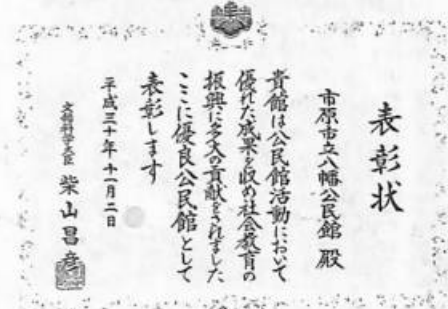 表彰状
市原市立八幡公民館 殿
貴館は公民館活動において
優れた成果を収め社会教育の
振興に多大の貢献をされました
ここに優良公民館として
表彰します
平成三十年十一月二日
文部科学大臣 柴山昌彦